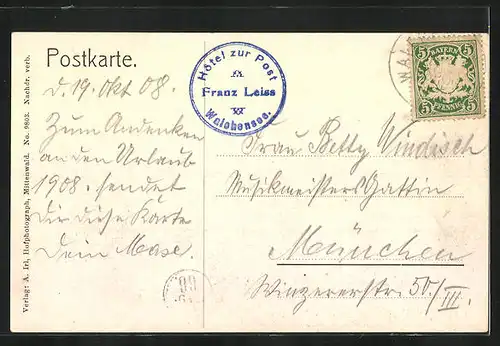 Postkarte.
d. 19. Okt 08.
Zum Andenken
an den Urlaub
1908. sendet
dir diese Karte
Dein Mase.
Hôtel zur Post
Franz Leiss
Walchensee.
WAL
BAYERN
5 5
5 PFENNIG 5
Frau Betty Windisch
Musikmeisters Gattin
München
Winzererstr. 50/III.
Verlag: A. Irl, Hofphotograph, Mittenwald. No. 9803. Nachdr. verb.